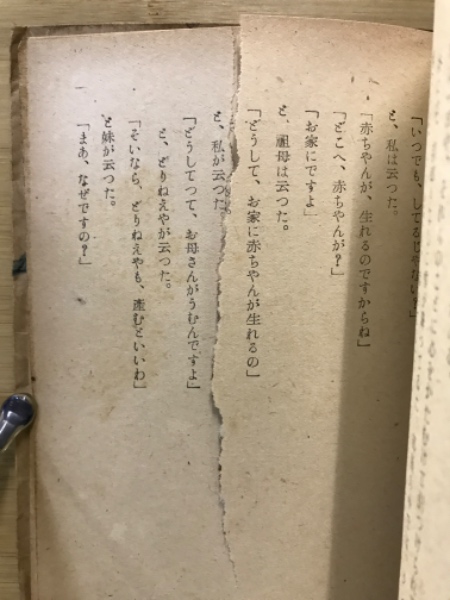 「いつでも、してるじやない？」
と、私は云つた。
「赤ちやんが、生れるのですからね」
「どこへ、赤ちやんが？」
「お家にですよ」
と、祖母は云つた。
「どうして、お家に赤ちやんが生れるの」
と、私が云つた。
「どうしてつて、お母さんがうむんですよ」
と、どりねえやが云つた。
「そいなら、どりねえやも、産むといいわ」
と妹が云つた。
「まあ、なぜですの？」